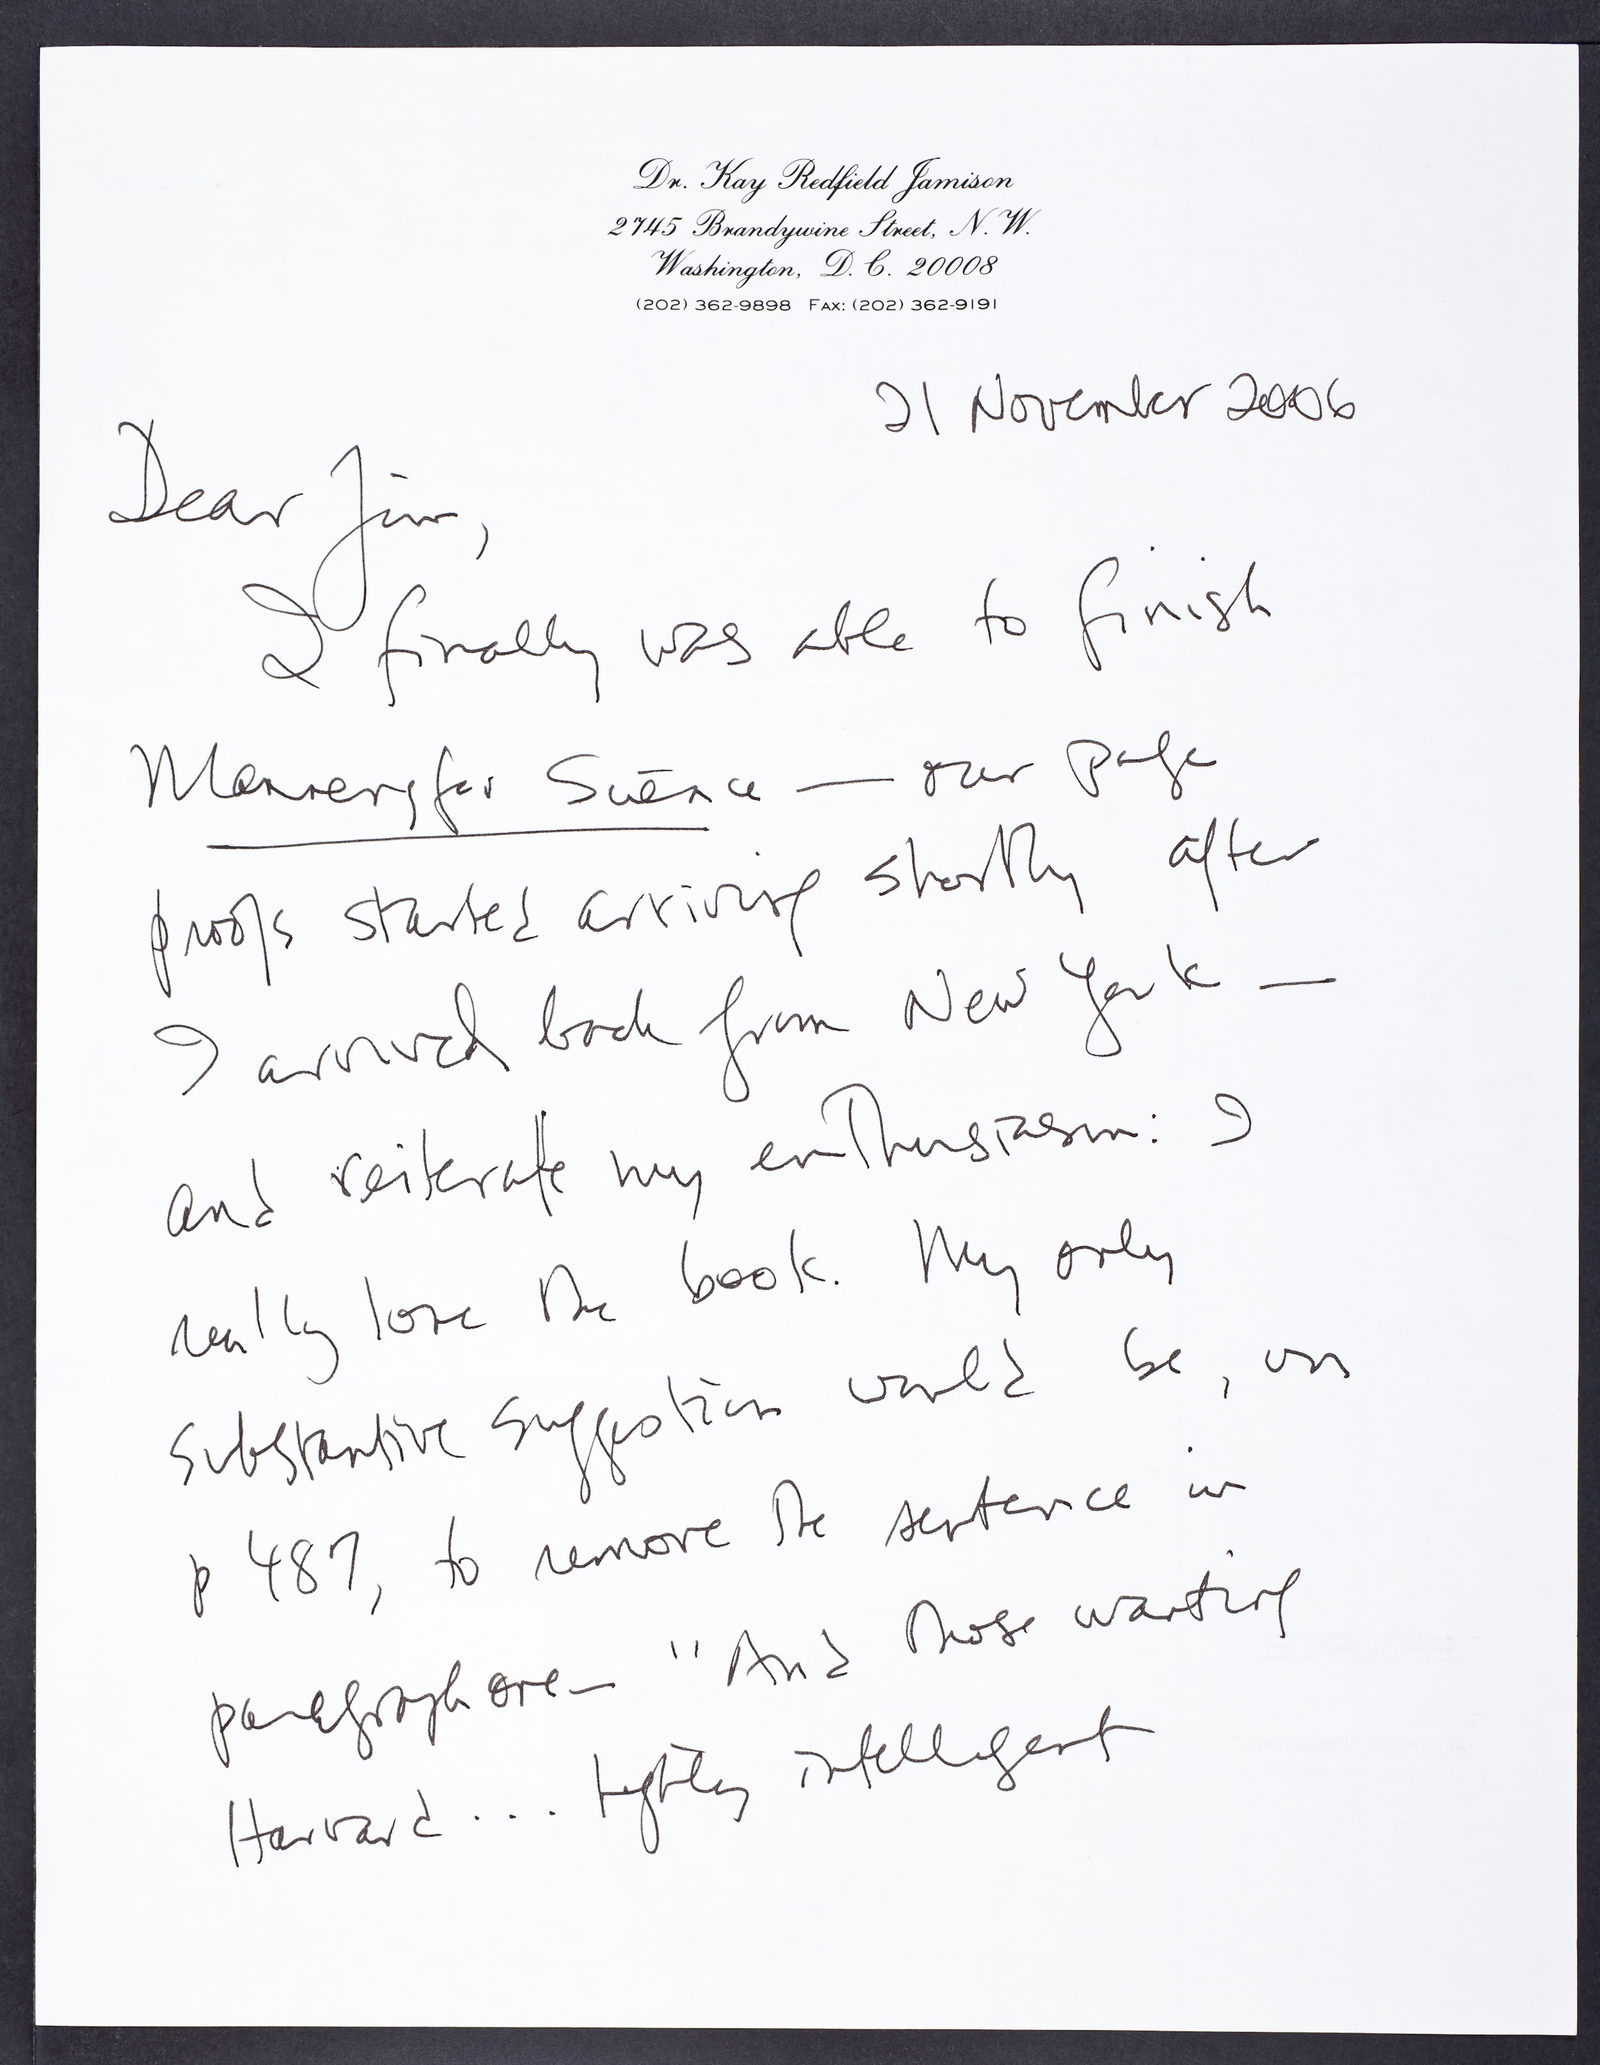 Dr. Kay Redfield Jamison
2745 Brandywine Street, N. W.
Washington, D. C. 20008
(202) 362-9898 Fax: (202) 362-9191
21 November 2006
Dear Jim,
I finally was able to finish
Manners for Science — our page
proofs started arriving shortly after
I arrived back from New York —
and reiterate my enthusiasm: I
really love the book. My only
substantive suggestion would be, on
p 487, to remove the sentence in
paragraph one — "And those wanting
Harvard .... highly intelligent